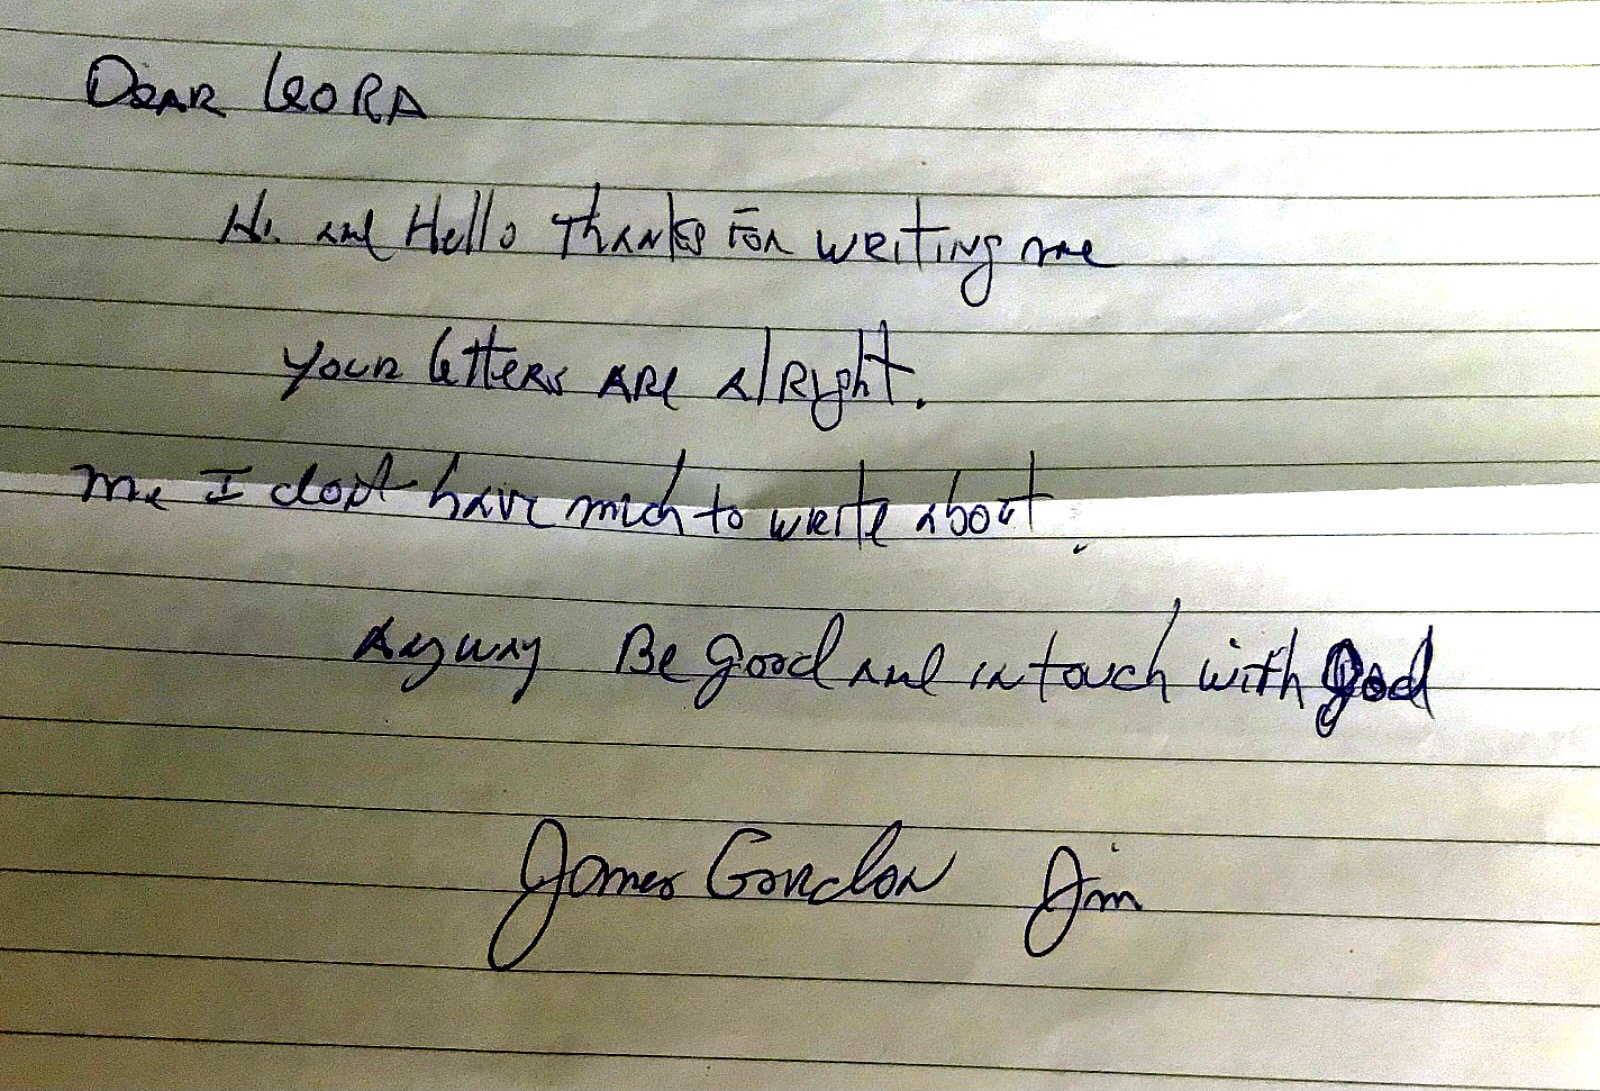 Dear Leora
Hi. and Hello Thanks For writing me
your letters are alright.
me I dont have much to write about.
Anyway Be good and in touch with God
James Gordon Jim